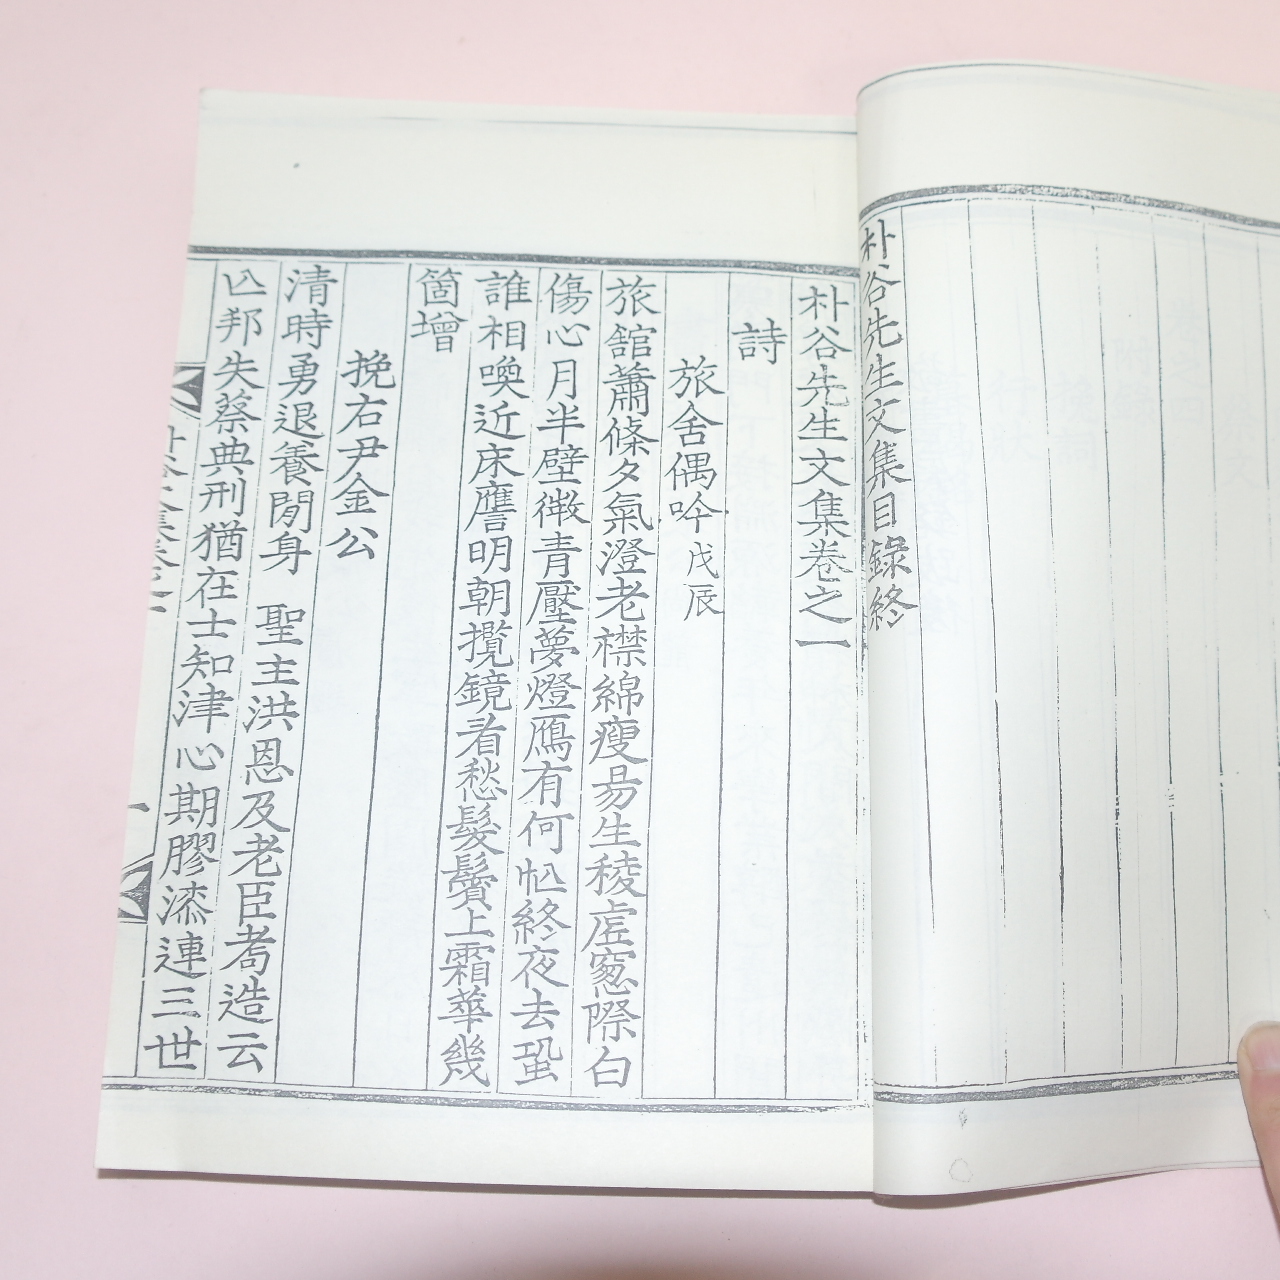 朴谷先生文集目錄終
朴谷先生文集卷之一
詩
旅舍偶吟 戊辰
旅舘蕭條夕氣澄老襟綿瘦易生稜虛窓際白
傷心月半壁微青壓夢燈鴈有何忙終夜去蛩
誰相喚近床譍明朝攬鏡看愁髮鬢上霜華幾
箇增
挽右尹金公
清時勇退養閒身 聖主洪恩及老臣耈造云
亾邦失蔡典刑猶在士知津心期膠漆連三世